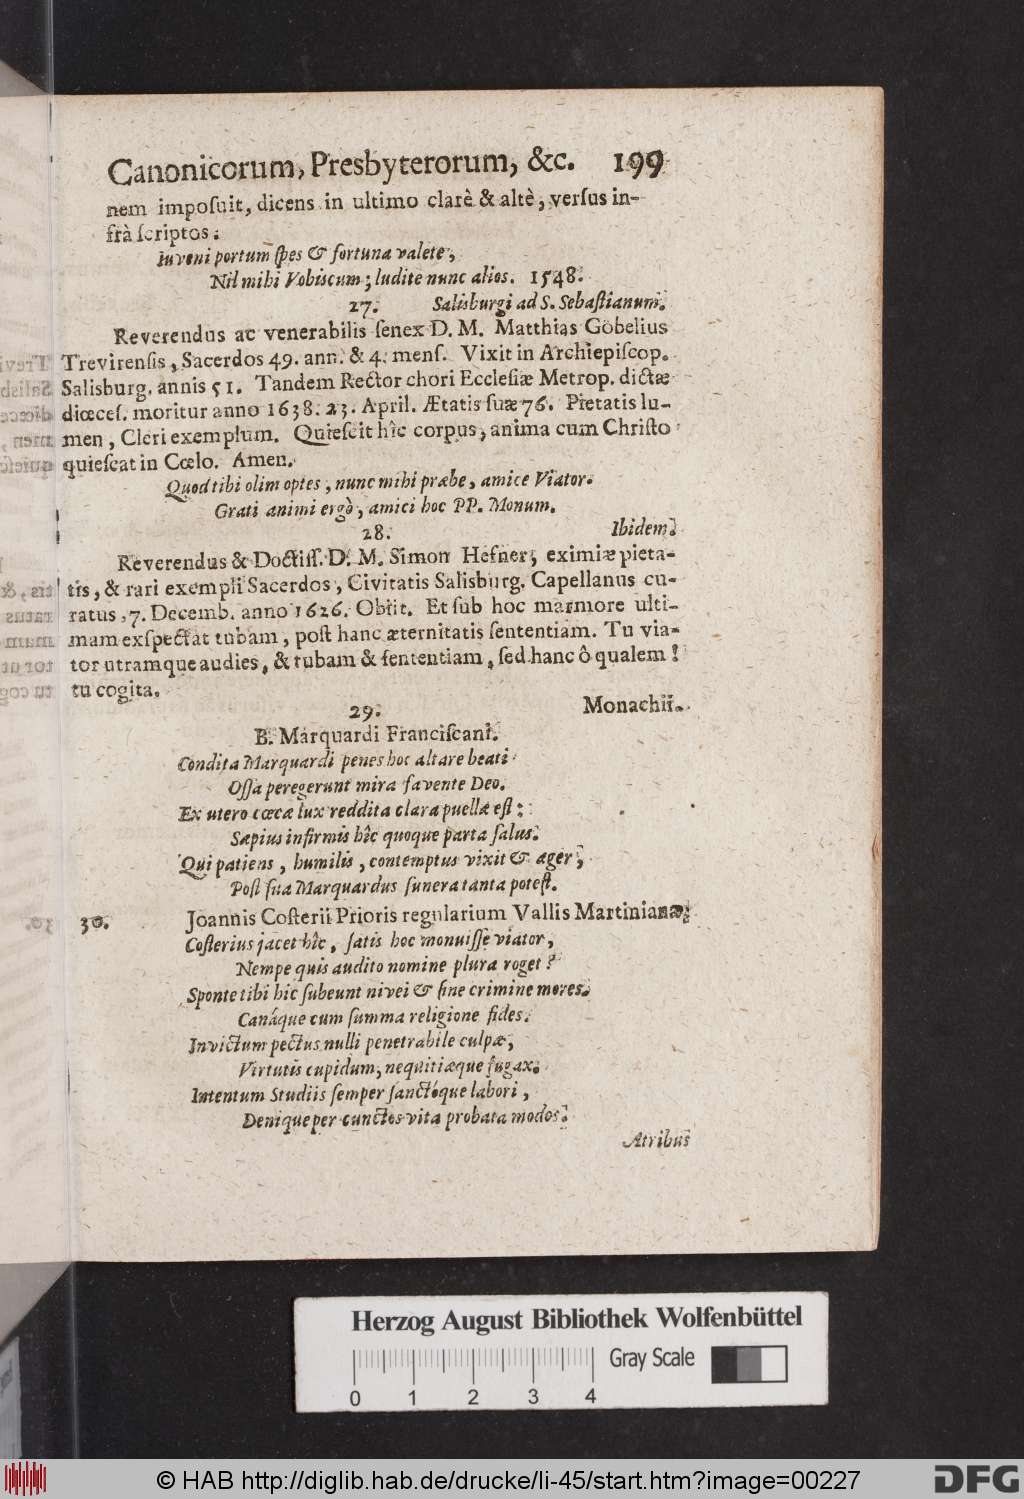 Canonicorum, Presbyterorum, &c. 199
nem imposuit, dicens in ultimo clarè & altè, versus in-
frà scriptos:
Inveni portum spes & fortuna valete,
Nil mihi Vobiscum; ludite nunc alios. 1548.
27. Salisburgi ad S. Sebastianum.
Reverendus ac venerabilis senex D. M. Matthias Göbelius
Trevirensis, Sacerdos 49. ann. & 4. mens. Vixit in Archiepiscop.
Salisburg. annis 51. Tandem Rector chori Ecclesiæ Metrop. dictæ
diœces. moritur anno 1638. 23. April. Ætatis suæ 76. Pietatis lu-
men, Cleri exemplum. Quiescit hîc corpus, anima cum Christo
quiescat in Cœlo. Amen.
Quod tibi olim optes, nunc mihi præbe, amice Viator.
Grati animi ergò, amici hoc PP. Monum.
28. Ibidem.
Reverendus & Doctiss. D. M. Simon Hefner, eximiæ pieta-
tis, & rari exempli Sacerdos, Civitatis Salisburg. Capellanus cu-
ratus, 7. Decemb. anno 1626. Obiit. Et sub hoc marmore ulti-
mam exspectat tubam, post hanc æternitatis sententiam. Tu via-
tor utramque audies, & tubam & sententiam, sed hanc ô qualem!
tu cogita.
29. Monachii.
B. Marquardi Franciscani.
Condita Marquardi penes hoc altare beati
Ossa peregerunt mira favente Deo.
Ex utero cæcæ lux reddita clara puellæ est:
Sæpius infirmis hîc quoque parta salus.
Qui patiens, humilis, contemptus vixit & æger,
Post sua Marquardus funera tanta potest.
30. Joannis Costerii Prioris regularium Vallis Martinianæ.
Costerius jacet hîc, satis hoc monuisse viator,
Nempe quis audito nomine plura roget?
Sponte tibi hic subeunt nivei & sine crimine mores.
Canáque cum summa religione fides.
Invictum pectus nulli penetrabile culpæ,
Virtutis cupidum, nequitiæque fugax.
Intentum Studiis semper sanctóque labori,
Denique per cunctos vita probata modos.
Atribus
Herzog August Bibliothek Wolfenbüttel
Gray Scale
0 1 2 3 4
© HAB http://diglib.hab.de/drucke/li-45/start.htm?image=00227
DFG